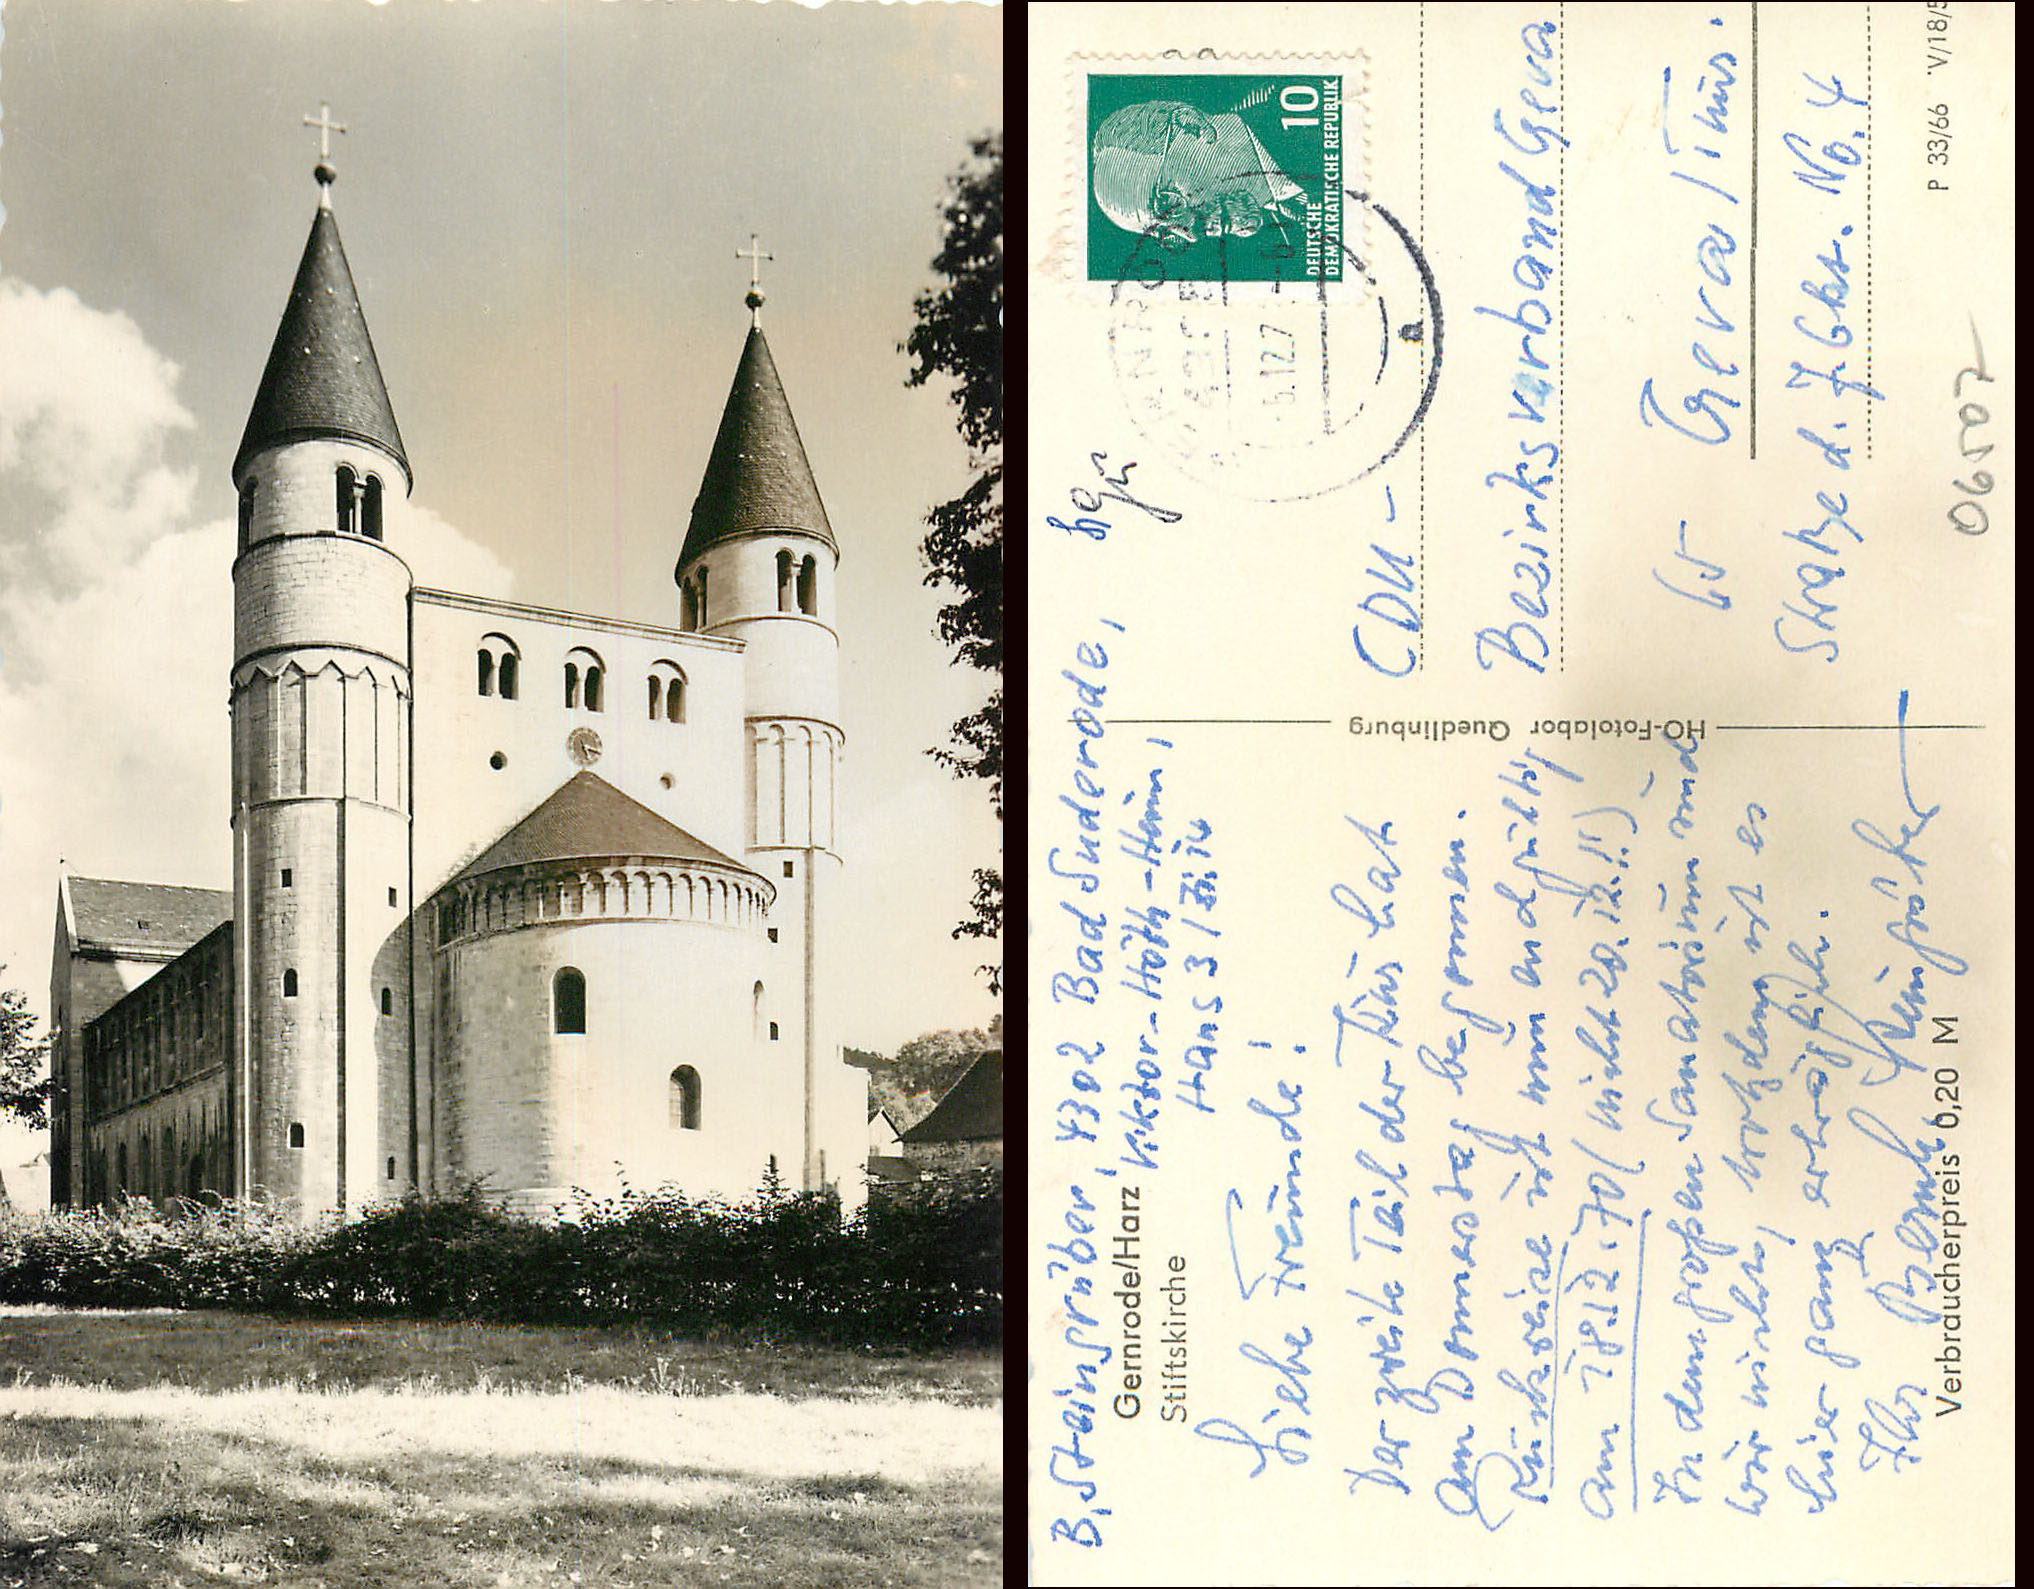 B. Steingrüber, 4302 Bad Suderode,
Viktor-Höhn-Heim,
Haus 3 / Zi. 14
Gernrode/Harz
Stiftskirche
Liebe Freunde!
Der zweite Teil der Kur hat
am Donnerstag begonnen.
Rückreise ist nun endgültig
am 18.12.70 (nicht 20.12.!!)
In dem großen Sanatorium sind
wir nicht, trotzdem ist es
hier ganz erträglich.
Ihr Bernh. Steingrüber
Verbraucherpreis 0,20 M
HO-Fotolabor Quedlinburg
10
DEUTSCHE
DEMOKRATISCHE REPUBLIK
CDU-
Bezirksverband Gera
65 Gera/Thür.
Straße d. 7. Okt. No. 4
P 33/66 V/18/5
06507